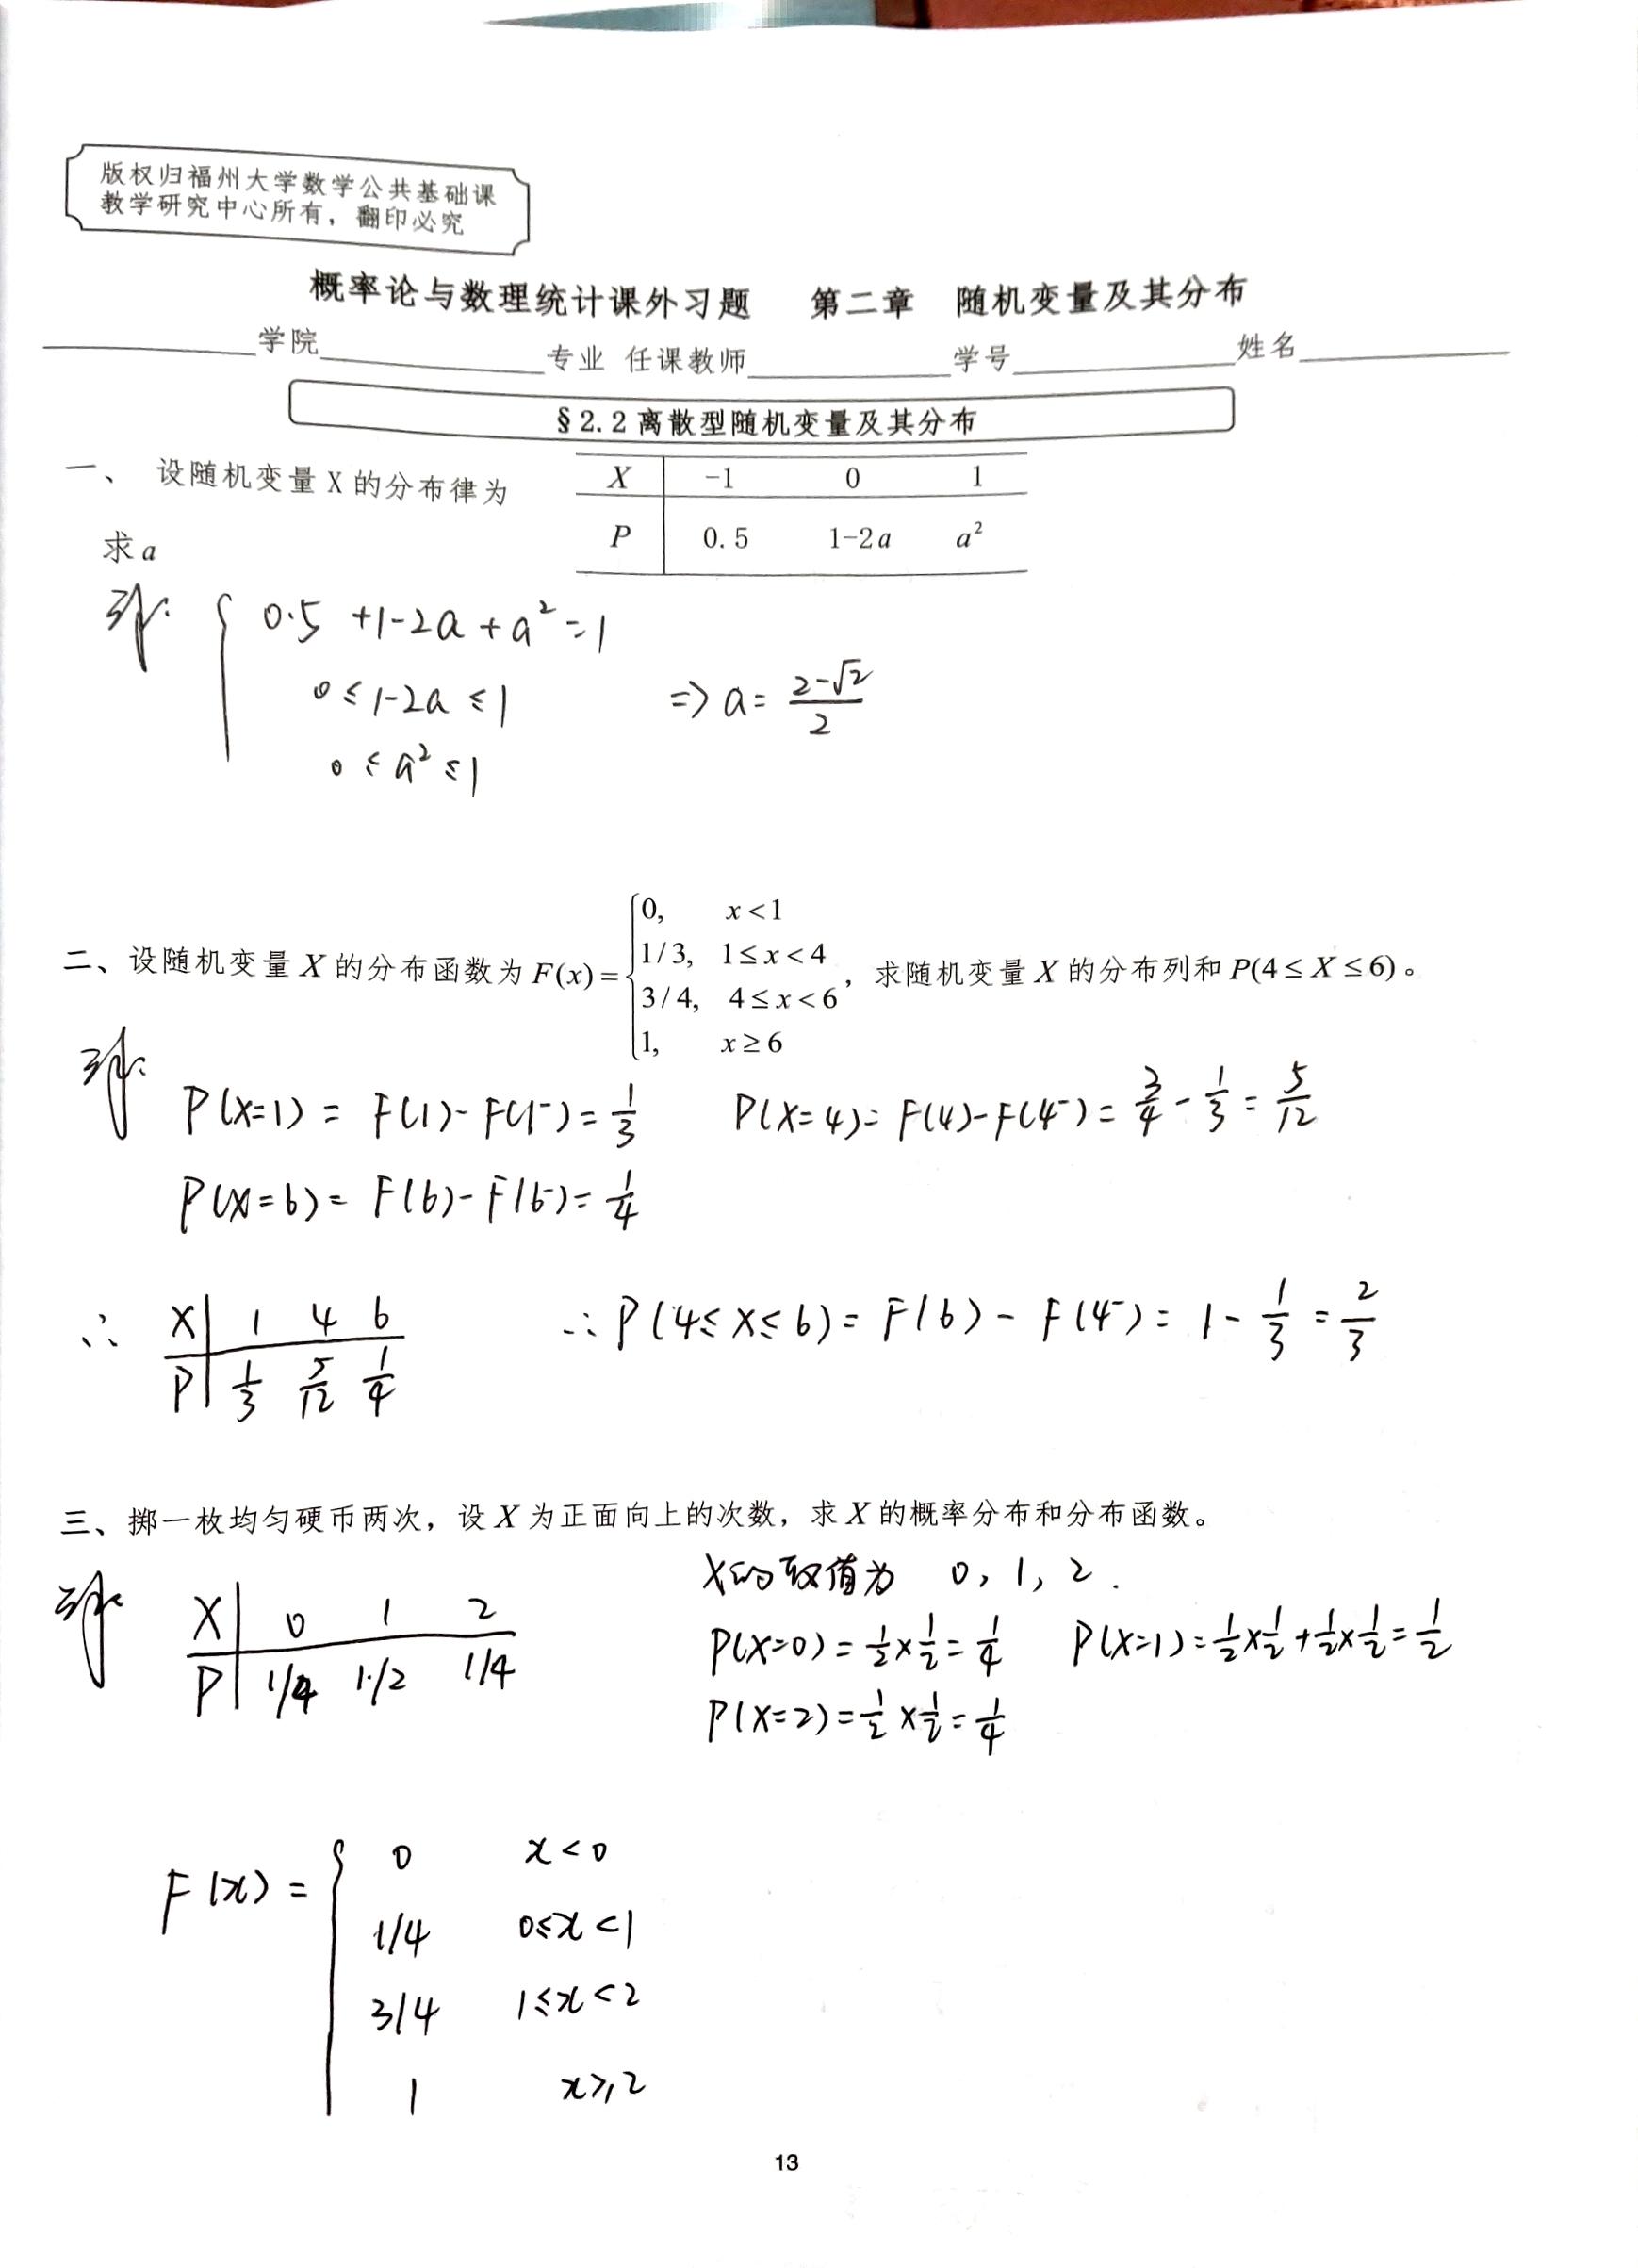 版权归福州大学数学公共基础课
教学研究中心所有，翻印必究
概率论与数理统计课外习题 第二章 随机变量及其分布
学院 专业 任课教师 学号 姓名
§2.2离散型随机变量及其分布
一、 设随机变量X的分布律为
X -1 0 1
求a
P 0.5 1-2a a²
解: { 0.5 +1-2a+a²=1
0≤1-2a≤1 => a= (2-√2)/2
0≤a²≤1
二、设随机变量X的分布函数为F(x)={0, x<1
1/3, 1≤x<4
3/4, 4≤x<6
1, x≥6
，求随机变量X的分布列和P(4≤X≤6)。
解:
P(X=1) = F(1)-F(1⁻)=1/3 P(X=4)=F(4)-F(4⁻)=3/4-1/3=5/12
P(X=6)=F(6)-F(6⁻)=1/4
∴ X 1 4 6
P 1/3 5/12 1/4
∴P(4≤X≤6)=F(6)-F(4⁻)=1-1/3=2/3
三、掷一枚均匀硬币两次，设X为正面向上的次数，求X的概率分布和分布函数。
解:
X 0 1 2
P 1/4 1/2 1/4
X的取值为 0, 1, 2.
P(X=0)=1/2×1/2=1/4 P(X=1)=1/2×1/2+1/2×1/2=1/2
P(X=2)=1/2×1/2=1/4
F(x)={ 0 x<0
1/4 0≤x<1
3/4 1≤x<2
1 x≥2
13